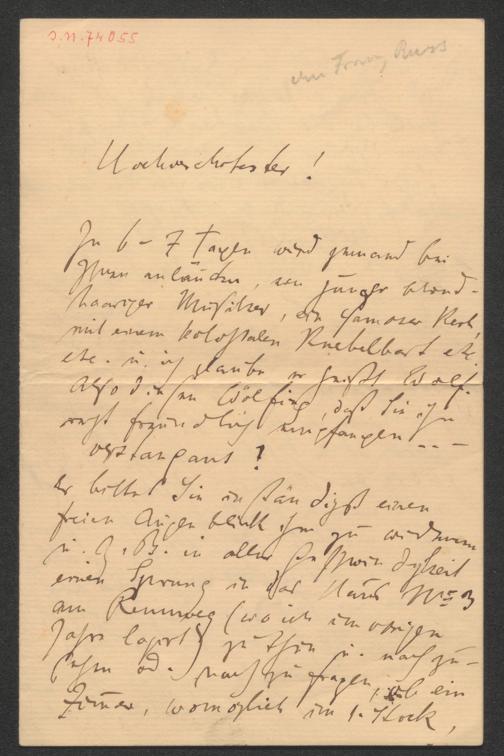 I.N. 74055
An Franz Russ
Hochverehrtester!
In 6–7 Tagen wird jemand bei
Ihnen anläuten, ein junger blond-
haariger Musiker, ein famoser Kerl,
mit einem kolossalen Knebelbart etc.
etc. u. ich glaube er heißt Wolf.
Also d. Wölfing, daß Sie ihn
recht freundlich empfangen – –
verstanden?
Er bittet Sie inständigst einen
freien Augenblick ihm zu widmen
u. z. B. in aller Geschwindigkeit
einen Sprung in das Haus No 3
am Rennweg (wo ich im vorigen
Jahre logirt) zu thun u. nachzu-
sehen od. nachzufragen, ob ein
Zimmer, womöglich im 1. Stock,